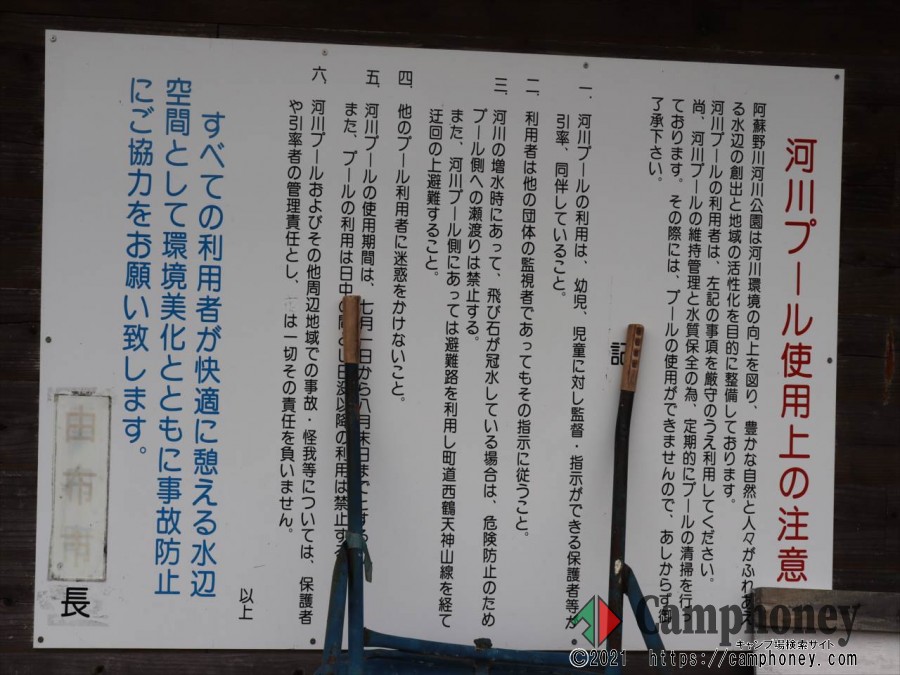 河川プール使用上の注意
阿蘇野川河川公園は河川環境の向上を図り、豊かな自然と人々がふれあえ
る水辺の創出と地域の活性化を目的に整備しております。
河川プールの利用者は、左記の事項を厳守のうえ利用してください。
尚、河川プールの維持管理と水質保全の為、定期的にプールの清掃を行っ
ております。その際には、プールの使用ができませんので、あしからず御
了承下さい。
記
一、河川プールの利用は、幼児、児童に対し監督・指示ができる保護者等が
引率、同伴していること。
二、利用者は他の団体の監視者であってもその指示に従うこと。
三、河川の増水時にあって、飛び石が冠水している場合は、危険防止のため
プール側への瀬渡りは禁止する。
また、河川プール側にあっては避難路を利用し町道西鶴天神山線を経て
迂回の上避難すること。
四、他のプール利用者に迷惑をかけないこと。
五、河川プールの使用期間は、七月一日から八月末日までとする
また、プールの利用は日中の間とし日没以降の利用は禁止する
六、河川プールおよびその他周辺地域での事故・怪我等については、保護者
や引率者の管理責任とし、は一切その責任を負いません。
以上
すべての利用者が快適に憩える水辺
空間として環境美化とともに事故防止
にご協力をお願い致します。
由布市長
Camphoney
キャンプ場検索サイト
©2021 https://camphoney.com